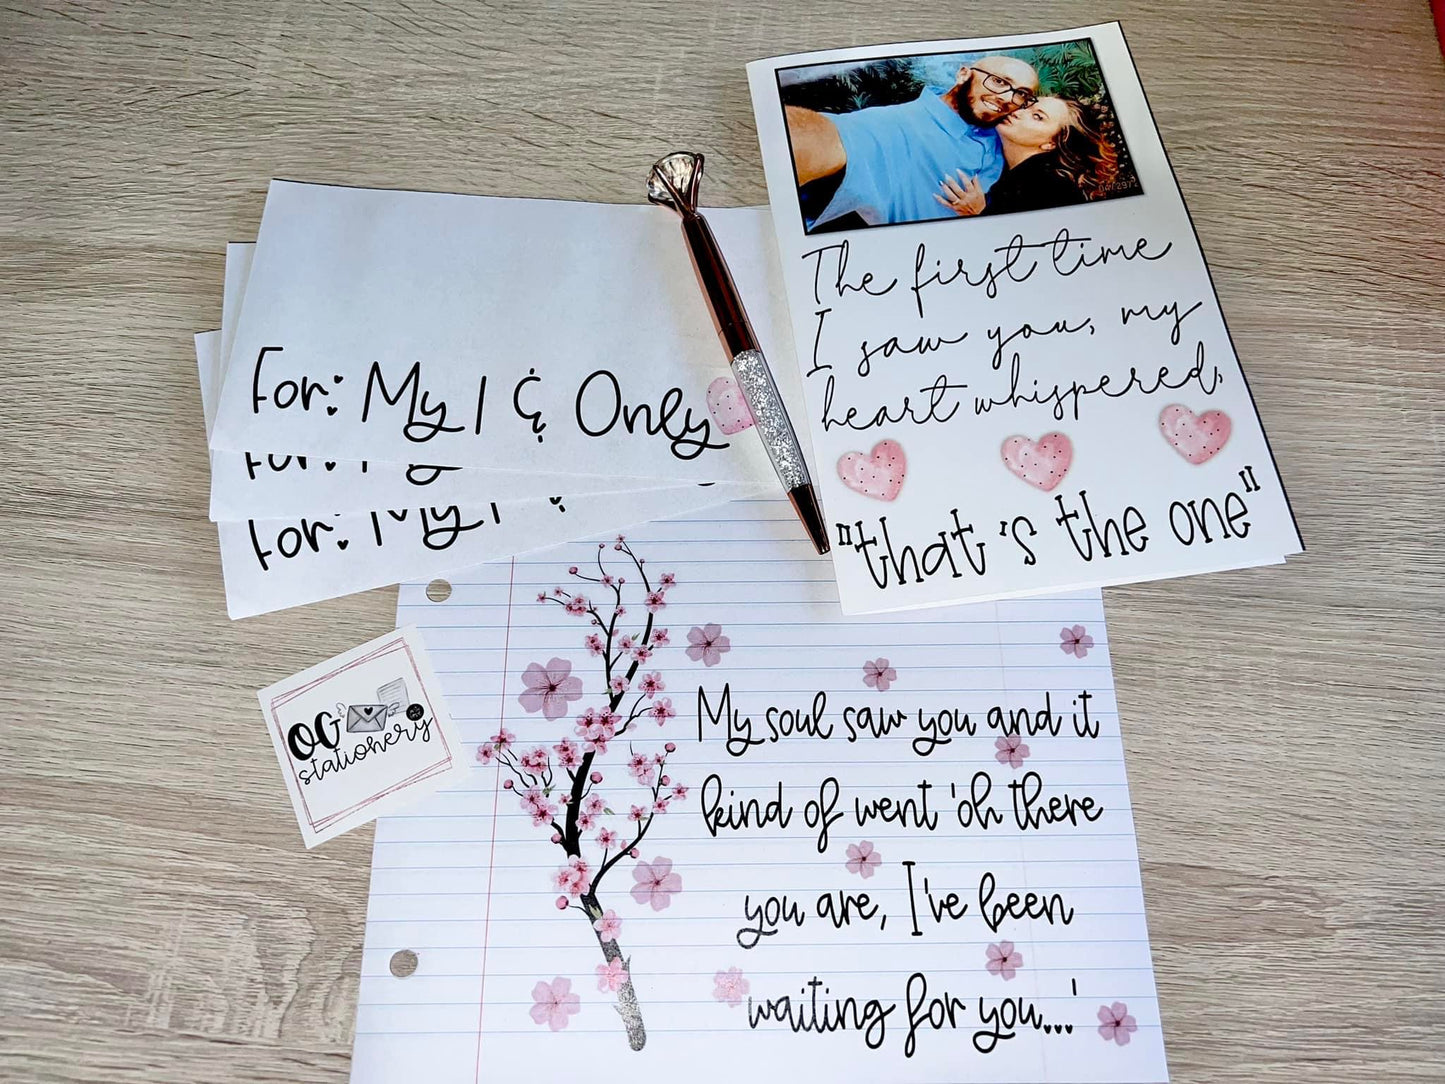 The first time
I saw you, my
heart whispered,
"that's the one"
For: My 1 & Only
For: My
For: My 1 &
OG
stationery
My soul saw you and it
kind of went 'oh there
you are, I've been
waiting for you...'